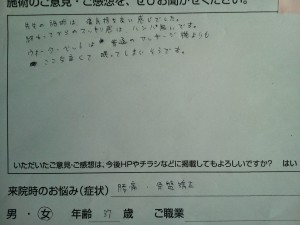 施術のご意見・ご感想を、ぜひお聞かせください。
先生の施術は 痛気持ち良い感じでした。
終わったアトのスッキリ感は ハンパ無いです。
ウォーターベッドは 普通のマッサージ機よりも
ここちよくて 眠ってしまいそうです。
いただいたご意見・ご感想は、今後HPやチラシなどに掲載してもよろしいですか？ はい
来院時のお悩み（症状） 腰痛・骨盤矯正
男・女 年齢 37 歳 ご職業